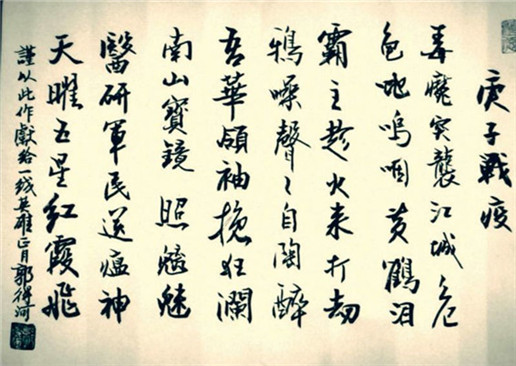 庚子戰疫
毒魔突襲江城危
龟蛇嗚咽黃鶴泪
霸主趁火来打劫
鴉噪聲々自陶醉
吾華領袖挽狂瀾
南山寶鏡照魑魅
醫研軍民送瘟神
天曜五星紅霞飛
謹以此作獻給一线英雄正月郭得河